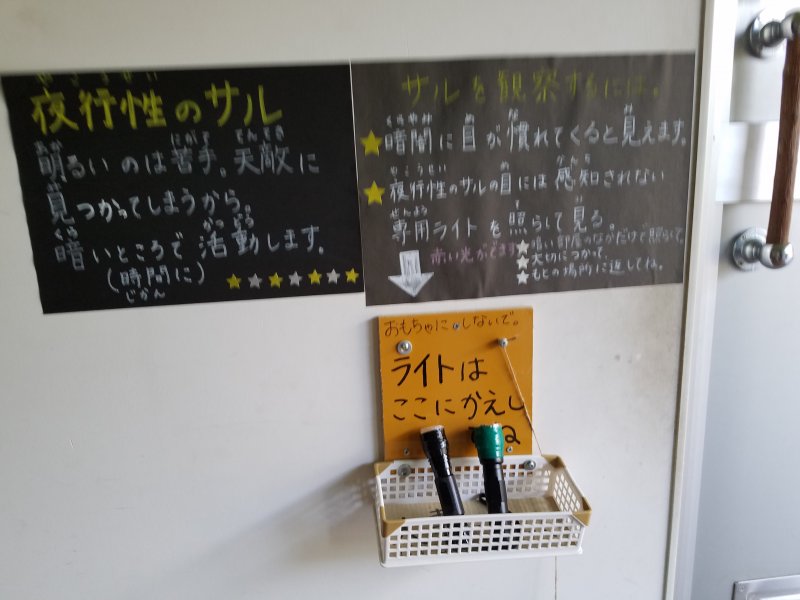 夜行性のサル
明るいのは苦手。天敵に
見つかってしまうから。
暗いところで活動します。
(時間に)
サルを観察するには。
暗闇に目が慣れてくると見えます。
夜行性のサルの目には感知されない
専用ライトを照らして見る。
赤い光がでます
暗い部屋のなかだけで照らして
大切につかって
もとの場所に返してね。
おもちゃにしないで。
ライトは
ここにかえし